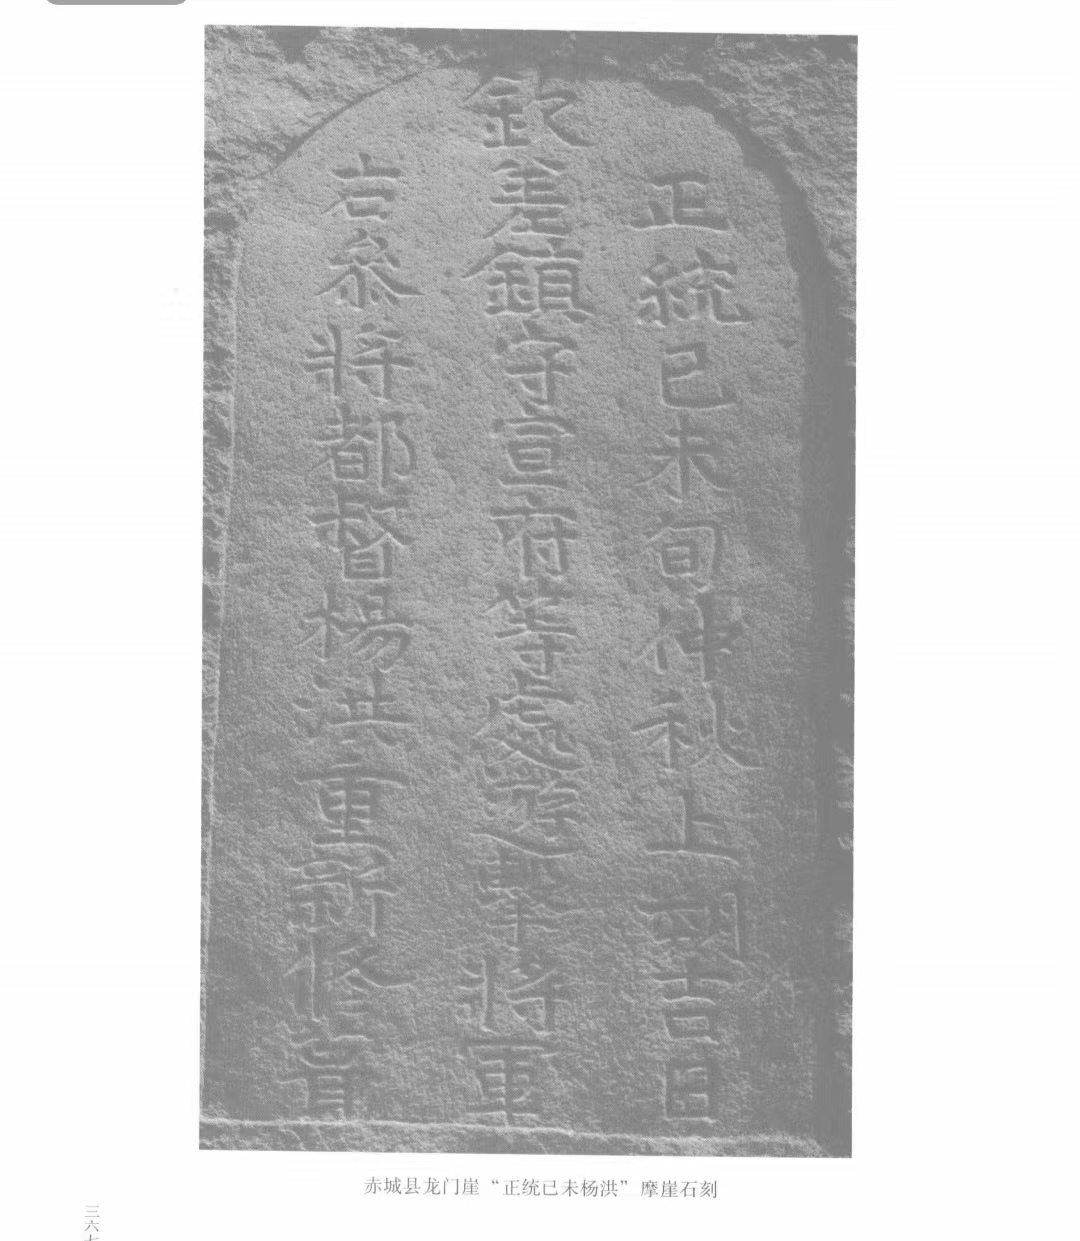 正統已未旬仲秋上朔吉旦
欽差鎮守宣府等處遊擊將軍
右叅將都督楊洪重新修
赤城县龙门崖“正统已未杨洪”摩崖石刻
三六七